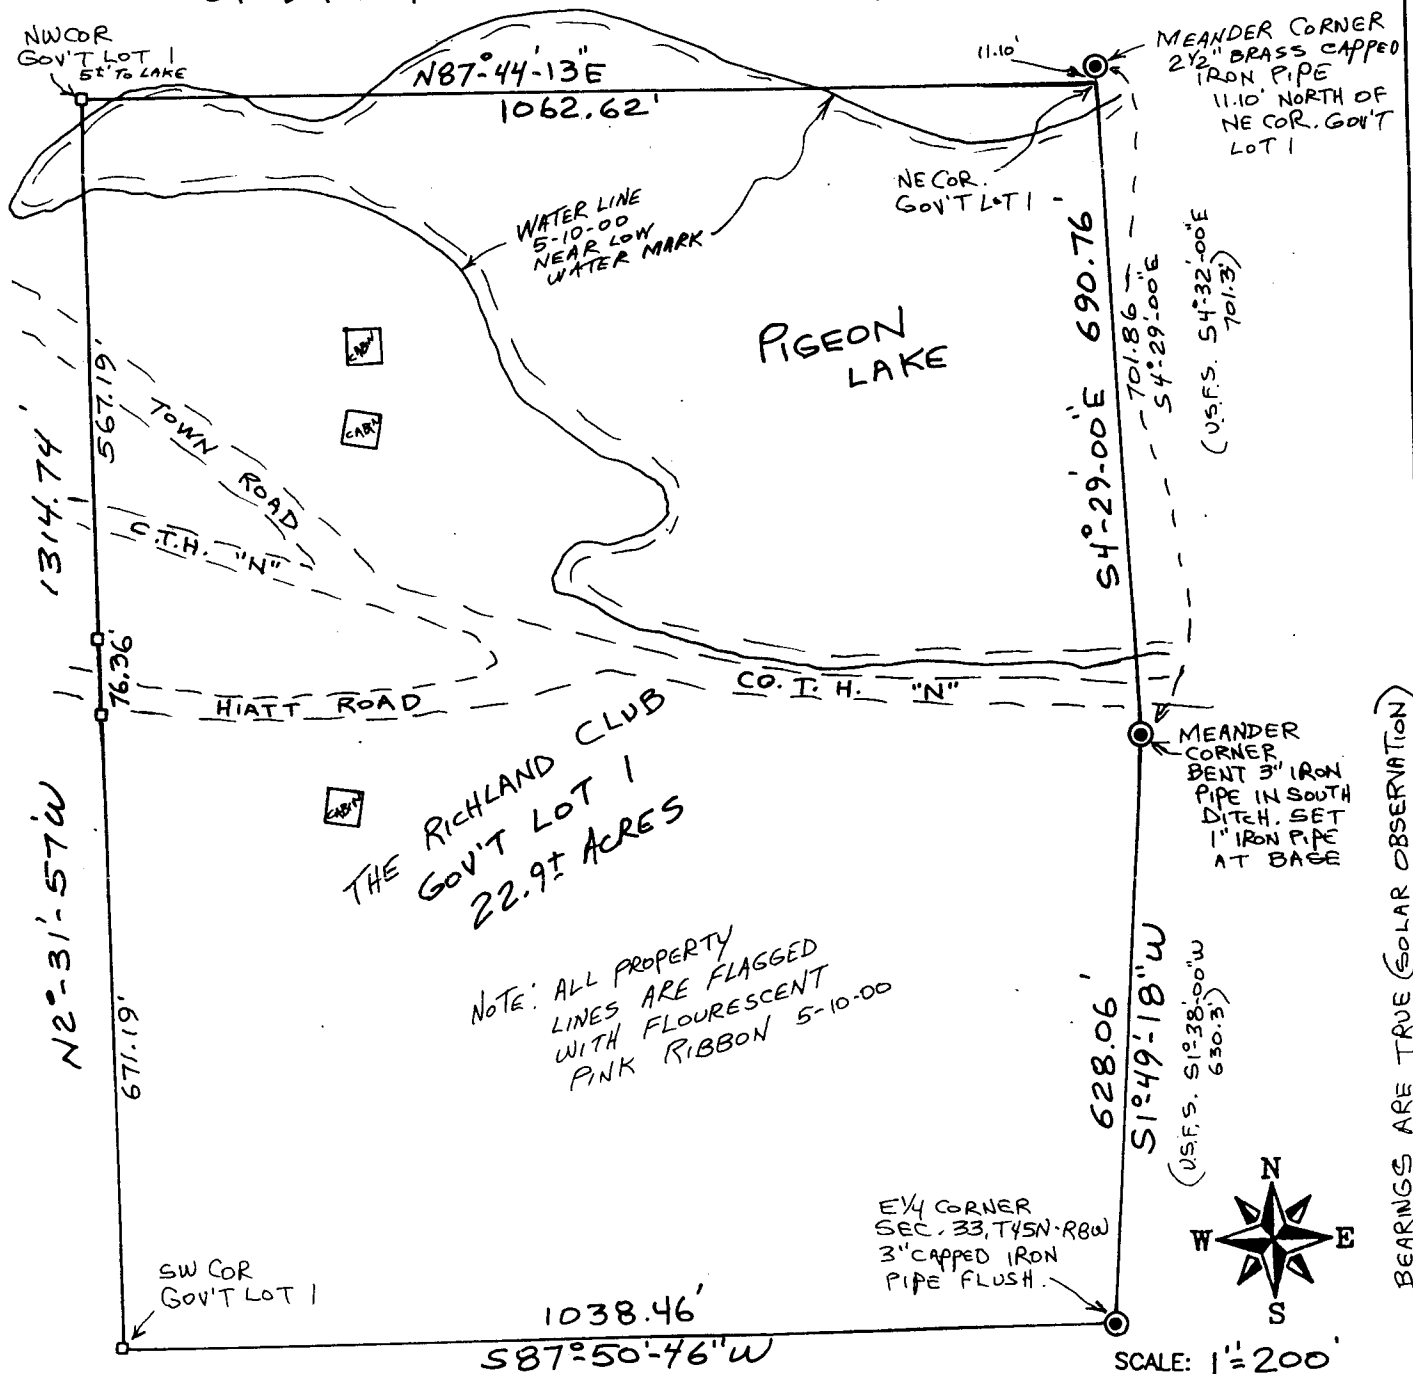 NW COR
GOV'T LOT 1
5± TO LAKE
N87°-44'-13"E
1062.62'
11.10'
MEANDER CORNER
2½" BRASS CAPPED
IRON PIPE
11.10' NORTH OF
NE COR. GOV'T
LOT 1
NE COR.
GOV'T LOT 1
WATER LINE
5-10-00
NEAR LOW
WATER MARK
PIGEON
LAKE
S4°-29'-00"E 690.76
701.86
S4°-29'-00"E
(U.S.F.S. S4°-32'-00"E
701.3')
CABIN
CABIN
567.19'
1314.74'
TOWN ROAD
C.T.H. "N"
76.36'
HIATT ROAD
CO. T. H. "N"
MEANDER
CORNER
BENT 3" IRON
PIPE IN SOUTH
DITCH. SET
1" IRON PIPE
AT BASE
CABIN
THE RICHLAND CLUB
GOV'T LOT 1
22.9± ACRES
N2°-31'-57"W
671.19'
NOTE: ALL PROPERTY
LINES ARE FLAGGED
WITH FLOURESCENT
PINK RIBBON 5-10-00
628.06'
S1°-49'-18"W
(U.S.F.S. S1°-38'-00"W
630.3')
BEARINGS ARE TRUE (SOLAR OBSERVATION)
E¼ CORNER
SEC. 33, T45N-R8W
3" CAPPED IRON
PIPE FLUSH.
N
W E
S
SW COR
GOV'T LOT 1
1038.46'
S87°-50'-46"W
SCALE: 1"=200'